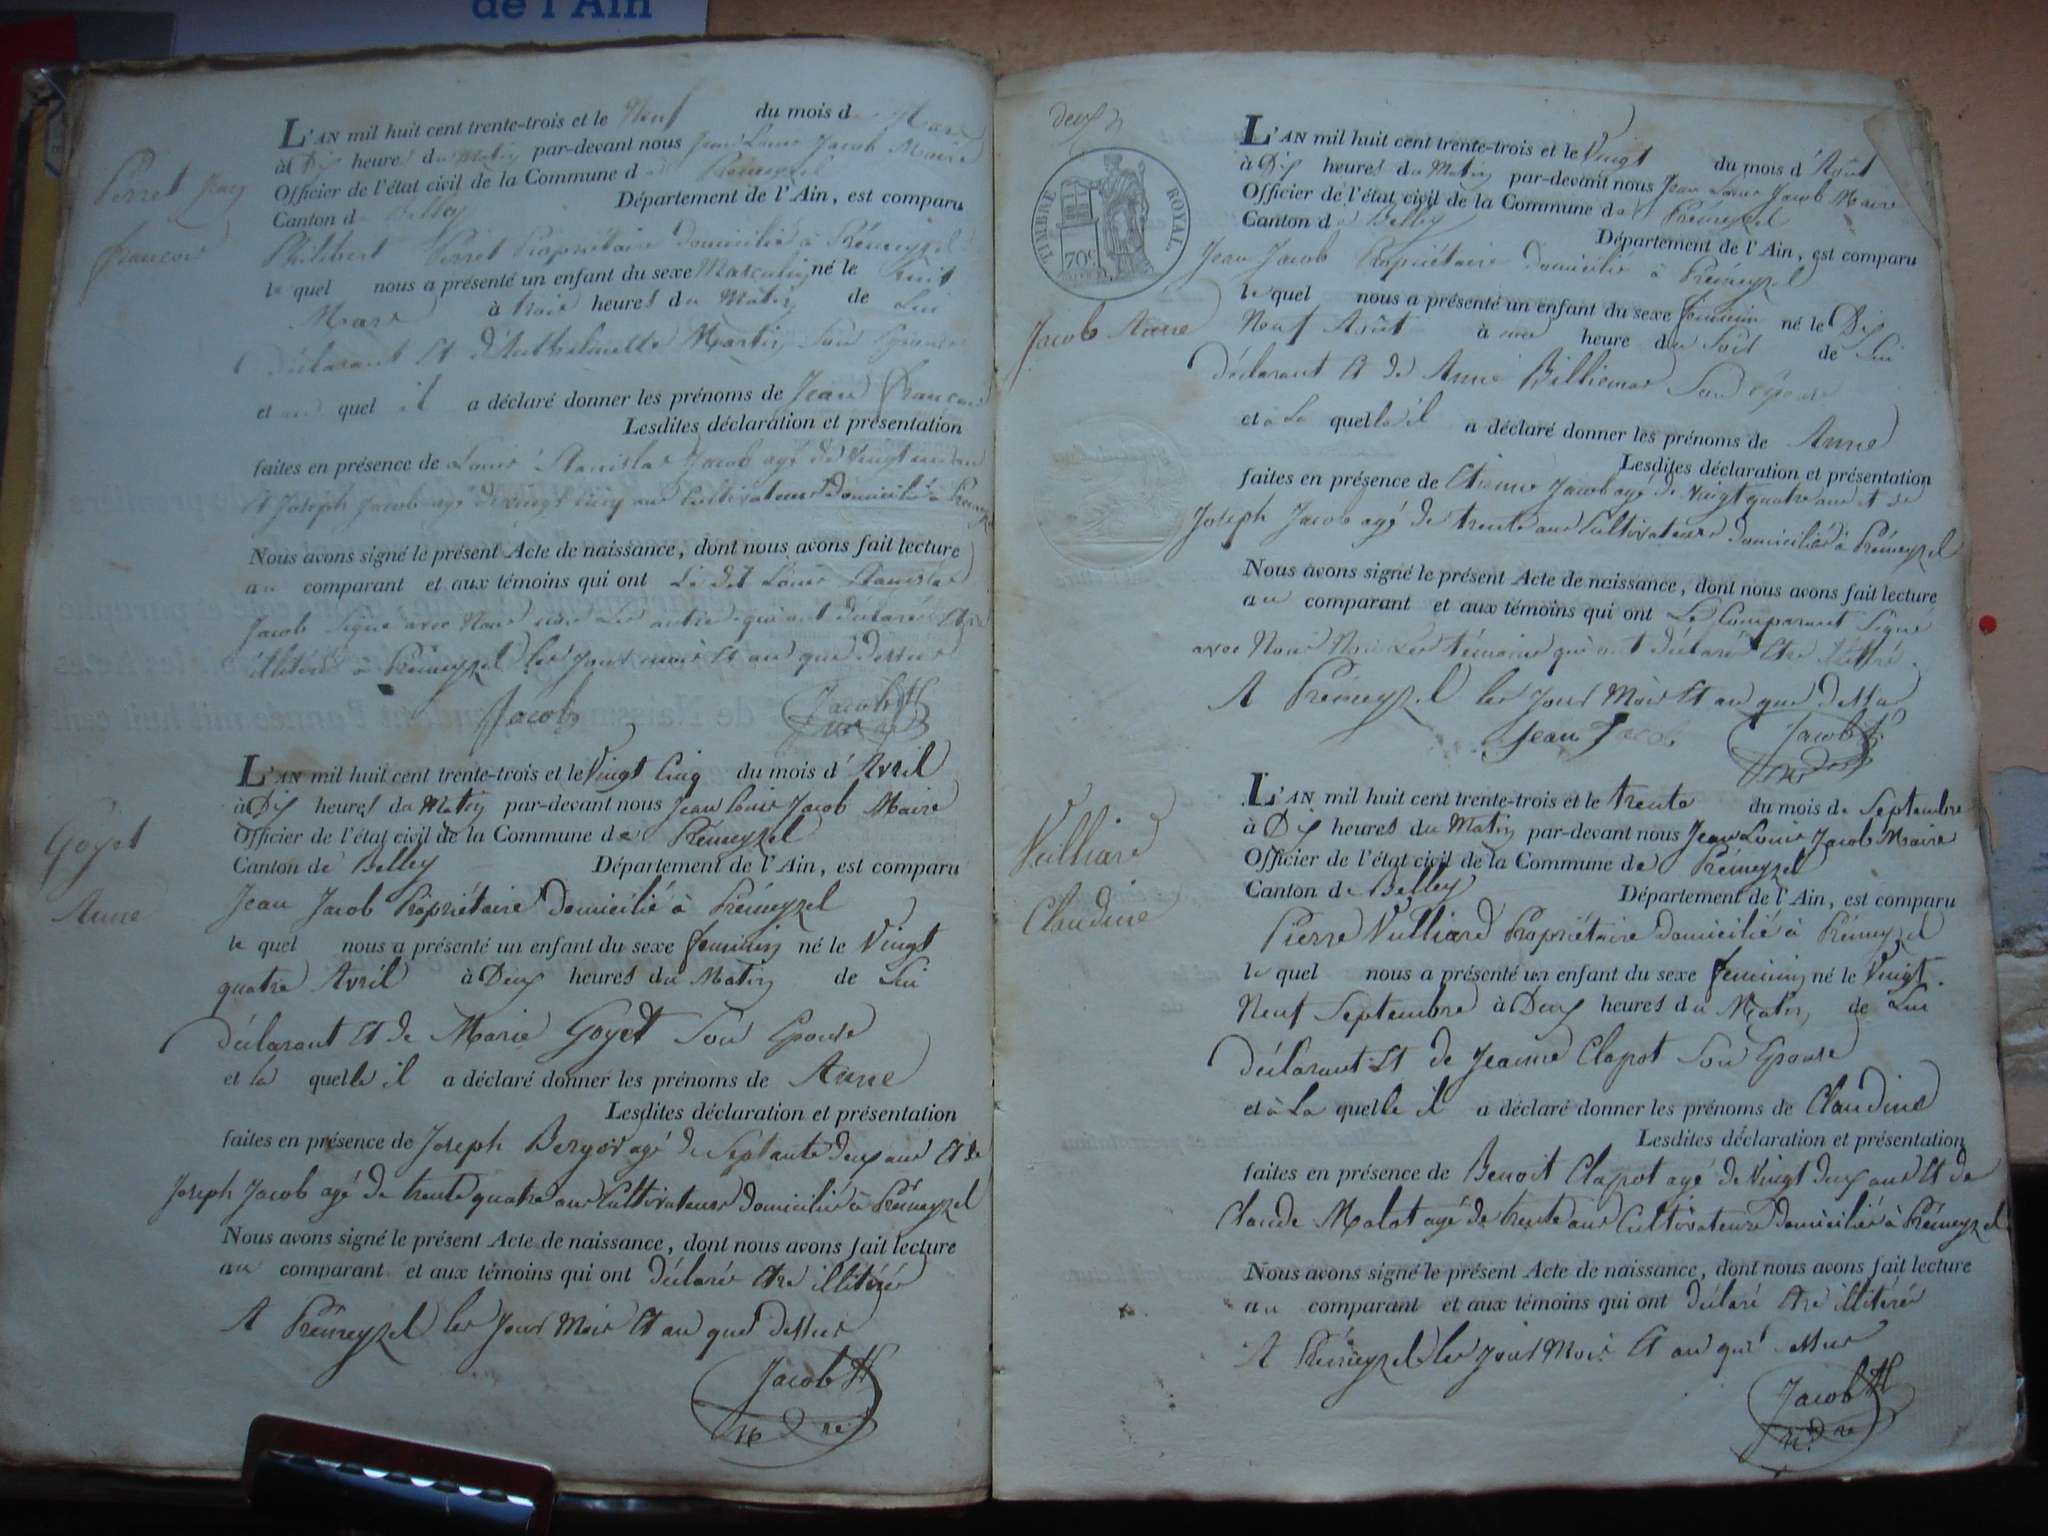 de l'Ain
Perret Jean
françois
L'AN mil huit cent trente-trois et le Neuf du mois d Mars
à Dix heures du Matin par-devant nous Jean Louis Jacob Maire
Officier de l'état civil de la Commune de Prémeyzel
Canton de Belley Département de l'Ain, est comparu
Philibert Perret Propriétaire domicilié à Prémeyzel
le quel nous a présenté un enfant du sexe Masculin né le huit
Mars à trois heures du Matin de Lui
déclarant Et d'Anthelmette Martin Son Epouse
et au quel il a déclaré donner les prénoms de Jean françois
Lesdites déclaration et présentation
faites en présence de Louis Stanislas Jacob agé de Vingt un ans
Et Joseph Jacob agé de vingt cinq ans Cultivateurs domiciliés à Prémeyzel
Nous avons signé le présent Acte de naissance, dont nous avons fait lecture
au comparant et aux témoins qui ont Le dit Louis Stanislas
Jacob Signé avec Nous non les autres qui ont déclaré Etre
illitéré à Prémeyzel les jour mois Et an que dessus
Jacob
Jacob
Goyet
Anne
L'AN mil huit cent trente-trois et le Vingt Cinq du mois d'Avril
à Dix heures du Matin par-devant nous Jean Louis Jacob Maire
Officier de l'état civil de la Commune de Prémeyzel
Canton de Belley Département de l'Ain, est comparu
Jean Jacob Propriétaire domicilié à Prémeyzel
le quel nous a présenté un enfant du sexe feminin né le Vingt
quatre Avril à Deux heures du Matin de Lui
déclarant Et de Marie Goyet Son Epouse
et la quelle il a déclaré donner les prénoms de Anne
Lesdites déclaration et présentation
faites en présence de Joseph agé de Septante deux ans Et de
Joseph Jacob agé de trente quatre ans Cultivateurs domiciliés à Prémeyzel
Nous avons signé le présent Acte de naissance, dont nous avons fait lecture
au comparant et aux témoins qui ont déclaré Etre illitéré
A Prémeyzel les Jour Mois Et an que dessus
Jacob
deux
TIMBRE ROYAL
70c
Jacob Anne
L'AN mil huit cent trente-trois et le Vingt du mois d'Août
à Dix heures du Matin par-devant nous Jean Louis Jacob Maire
Officier de l'état civil de la Commune de Prémeyzel
Canton de Belley Département de l'Ain, est comparu
Jean Jacob Propriétaire domicilié à Prémeyzel
le quel nous a présenté un enfant du sexe feminin né le Dix
Neuf Août à une heure du Soir de Lui
déclarant Et de Anne Billiemaz Son épouse
et à La quelle il a déclaré donner les prénoms de Anne
Lesdites déclaration et présentation
faites en présence de Etienne Jacob agé de vingt quatre ans et de
Joseph Jacob agé de trente ans Cultivateurs domiciliés à Prémeyzel
Nous avons signé le présent Acte de naissance, dont nous avons fait lecture
au comparant et aux témoins qui ont Le Comparant Signé
avec Nous Non Les témoins qui ont déclaré Etre illitéré
A Prémeyzel les Jour Mois Et an que dessus
Jean Jacob
Jacob
Vulliard
Claudine
L'AN mil huit cent trente-trois et le trente du mois de Septembre
à Dix heures du Matin par-devant nous Jean Louis Jacob Maire
Officier de l'état civil de la Commune de Prémeyzel
Canton de Belley Département de l'Ain, est comparu
Pierre Vulliard Propriétaire domicilié à Prémeyzel
le quel nous a présenté un enfant du sexe feminin né le Vingt
Neuf Septembre à Deux heures du Matin de Lui
déclarant Et de Jeanne Clapot Son Epouse
et à La quelle il a déclaré donner les prénoms de Claudine
Lesdites déclaration et présentation
faites en présence de Benoit Clapot agé de Vingt deux ans Et de
Claude Malot agé de trente ans Cultivateurs domiciliés à Prémeyzel
Nous avons signé le présent Acte de naissance, dont nous avons fait lecture
au comparant et aux témoins qui ont déclaré Etre illitéré
A Prémeyzel les jour Mois Et an que dessus
Jacob